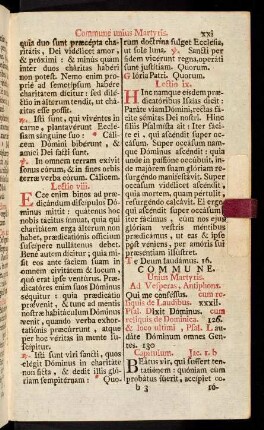 Commune unius Martyris. xxi
quia duo sunt præcepta cha-
ritatis, Dei videlicet amor,
& próximi: & minùs quam
inter duos cháritas habéri
non potest. Nemo enim pro-
priè ad semetípsum habére
charitátem dícitur: sed dilé-
ctio in álterum tendit, ut chá-
ritas esse possit.
℟. Isti sunt, qui vivéntes in
carne, plantavérunt Ecclé-
siam sánguine suo: * Cáli-
cem Dómini bibérunt, &
amíci Dei facti sunt.
℣. In omnem terram exívit
sonus eórum, & in fines orbis
terræ verba eórum. Cálicem.
Lectio viij.
Ecce enim binos ad præ-
dicándum discípulos Dó-
minus mittit: quátenus hoc
nobis tácitus ínnuat, quia qui
charitátem erga álterum non
habet, prædicatiónis officium
suscípere nullátenus debet.
Bene autem dícitur, quia mi-
sit eos ante fáciem suam in
omnem civitátem & locum,
quò erat ipse ventúrus. Præ-
dicatóres enim suos Dóminus
séquitur: quia prædicátio
prǽvenit, & tunc ad mentis
nostræ habitáculum Dóminus
venit, quando verba exhor-
tatiónis præcúrrunt, atque
per hoc véritas in mente su-
scípitur.
℟. Isti sunt viri sancti, quos
elégit Dóminus in charitáte
non ficta, & dedit illis gló-
riam sempitérnam: * Quo-
rum doctrina fulget Ecclésia,
ut sole luna. ℣. Sancti per
fidem vicérunt regna, operáti
sunt justítiam. Quorum.
Glória Patri. Quorum.
Lectio ix.
Hinc namque eísdem præ-
dicatóribus Isaías dicit:
Paráte viam Dómini, rectas fá-
cite sémitas Dei nostri. Hinc
illis Psalmísta ait: Iter fáci-
te ei, qui ascéndit super oc-
cásum. Super occásum nam-
que Dóminus ascéndit: quia
unde in passióne occúbuit, in-
de majórem suam glóriam re-
surgéndo manifestávit. Super
occásum vidélicet ascéndit,
quia mortem, quam pértulit,
resurgéndo calcávit. Ei ergo
qui ascéndit super occásum
iter fácimus, cùm nos ejus
glóriam vestris méntibus
prædicámus, ut eas & ipse
póst véniens, per amóris sui
præséntiam illústret.
Te Deum laudámus. 16.
COMMUNE
Unius Martyris.
Ad Vesperas, Antiphona.
Qui me conféssus. cum re-
liquis de Laudibus. xxxii.
Psal. Dixit Dóminus. cum
reliquis de Dominica. 126.
& loco ultimi, Psal. Lau-
dáte Dóminum omnes Gen-
tes. 130
Capitulum. Jac. 1. b
Beátus vir, qui suffert ten-
tatiónem: quóniam cùm
probátus fúerit, accípiet co-
b 3 ro-